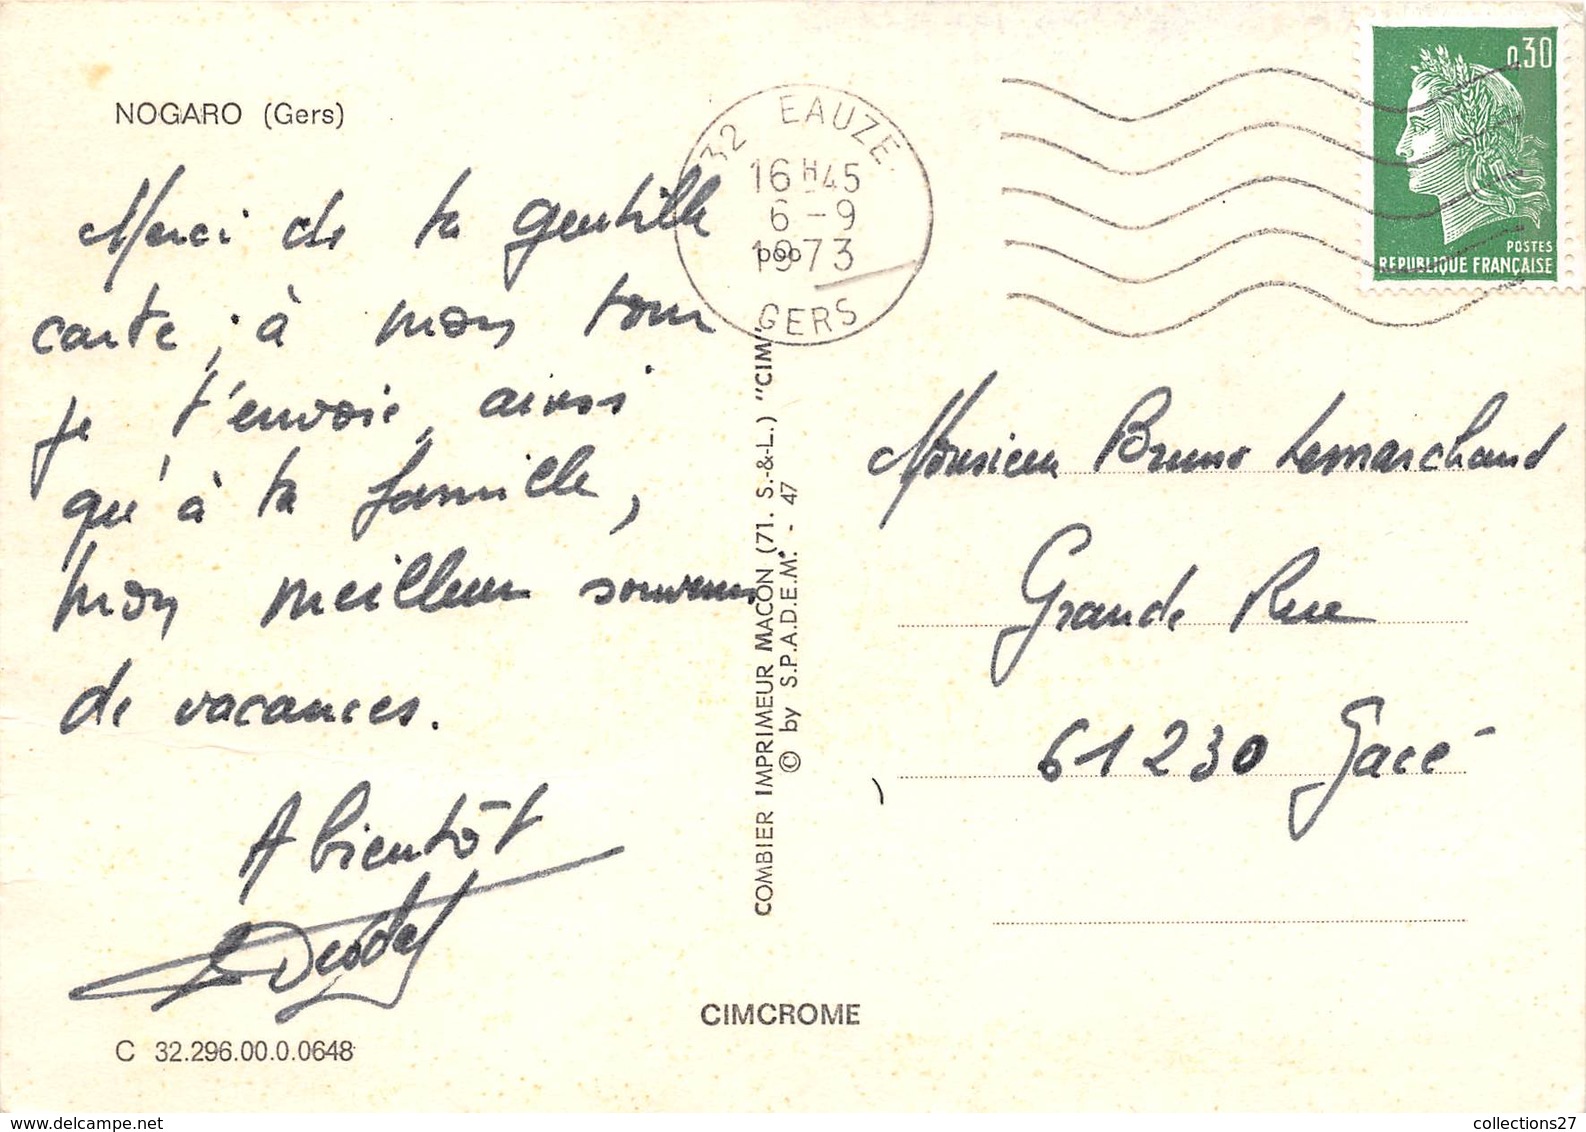 NOGARO (Gers)
Merci de ta gentille
carte, à mon tour
je t'envoie, ainsi
qu'à ta famille,
mon meilleur souvenir
de vacances.
A bientôt
C 32.296.00.0.0648
COMBIER IMPRIMEUR MACON (71. S.-&-L.) "CIM"
© by S.P.A.D.E.M. - 47
CIMCROME
32 EAUZE
16H45
6 -9
1973
GERS
0,30
POSTES
REPUBLIQUE FRANÇAISE
Monsieur Bruno Lemarchand
Grande Rue
61230 Gacé
collections27